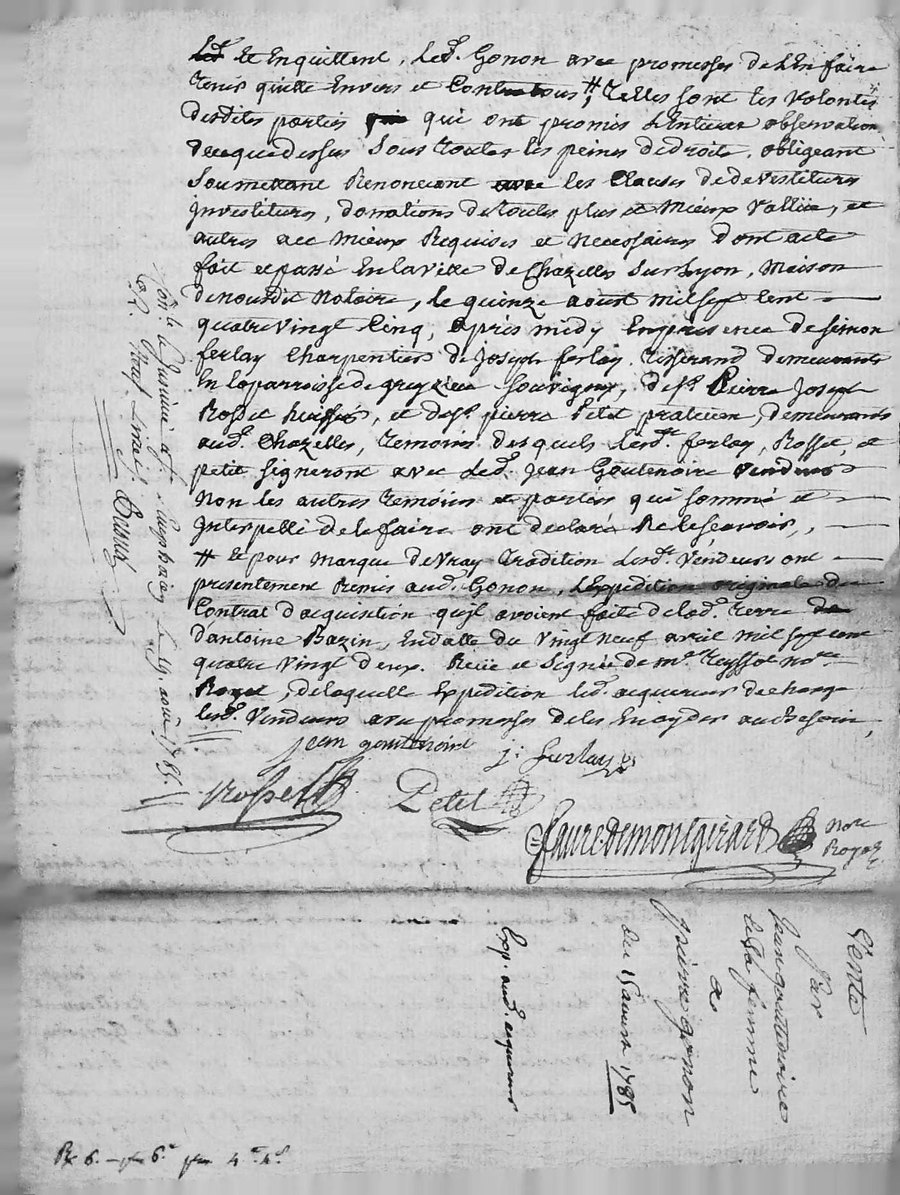 Et Enquittent, led. Gonon avec promesses de L'En faire
tenir quitte Envers et Contre tous #, telles sont les volontés
desdites parties qui ont promis L'Entiere observation
dece que dessus Sous toutes les peines de droits, obligeant
Soumettant Renonceant les Clauses de devestiture
Investiture, donations de toutes plus et Mieux Vallüe, et
autres acc Mieux Requises et Necessaires Dont acte
fait et passé En la ville de Chazelles sur Lyon, Maison
de nousdit Notaire, le quinze aoust mil sept Cent
quatre vingt Cinq, après midy En presence de Simon
ferlay Charpentier de Joseph ferlay Tisserand demeurants
En la parroisse de Souvigny, de Sr. Pierre Joseph
Rosset huissier, et de Sr. pierre Petit praticien, demeurants
aud. Chazelles, temoins desquels lesdt. ferlay, Rosset, et
petit signeront avec led. Jean Goutenoire Vendeur
Non les autres temoins et parties qui sommé et
Interpellé de le faire ont declaré Ne le scavoir,,
# Et pour Marque de Vray tradition lesdt. Vendeurs ont
presentement Remis aud. Gonon, L'Expedition originale du
Contrat d'acquisition qu'ils avoient faite de lad. terre
d'antoine Bazin, En datte du Vingt Neuf avril mil sept cent
quatre vingt deux. Reçü et Signée de me. teyssot note.
Royal, de laquelle Expedition led. acquereur decharge
lesd. Vendeurs avec promesses de les En ayder au Besoin,
jean goutenoire
j: ferlay
Rosset
Petit
faure de montgirard Note
Royal
le 19. aout 1785.
Vente
Par
Jean goutenoire
et Sa femme
a
pierre gonon
du 15 aoust 1785
Exp. aud. acquereur